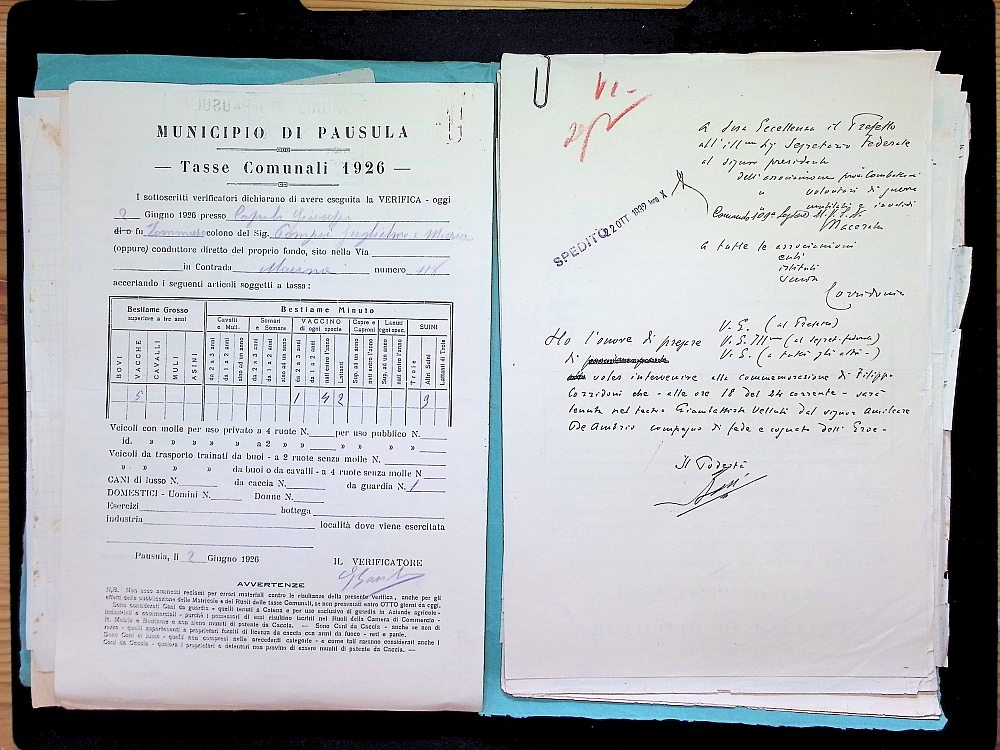 MUNICIPIO DI PAUSULA
— Tasse Comunali 1926 —
I sottoscritti verificatori dichiarano di avere eseguita la VERIFICA - oggi
2 Giugno 1926 presso
di o fu Tommaso colono del Sig. Pompei Guglielmo e
(oppure) conduttore diretto del proprio fondo, sito nella Via
in Contrada numero
accertando i seguenti articoli soggetti a tassa:
Bestiame Grosso
superiore a tre anni
Bestiame Minuto
Cavalli e Mul.
Somari e Somare
VACCINO di ogni specie
Capre e Caproni
Lanuti ogni spec.
SUINI
BOVI
VACCHE
CAVALLI
MULI
ASINI
da 2 a 3 anni
da 1 a 2 anni
sino ad un anno
da 2 a 3 anni
da 1 a 2 anni
sino ad un anno
da 2 a 3 anni
da 1 a 2 anni
nati entro l'anno
Lattanti
Sup. ad un anno
nati entro l'anno
Sup. ad un anno
nati entro l'anno
Troie
Altri Suini
Lattanti di Troie
5 1 4 2 3
Veicoli con molle per uso privato a 4 ruote N. per uso pubblico N.
id. » » » » a 2 » » » » »
Veicoli da trasporto trainati da buoi - a 2 ruote senza molle N.
» » » » da buoi o da cavalli - a 4 ruote senza molle N
CANI di lusso N. da caccia N. da guardia N. 1
DOMESTICI - Uomini N. Donne N.
Esercizi bottega
industria località dove viene esercitata
Pausula, li 2 Giugno 1926
IL VERIFICATORE
AVVERTENZE
N.B. Non sono ammessi reclami per errori materiali contro le risultanze della presente Verifica, anche per gli
effetti della pubblicazione delle Matricole e dei Ruoli delle tasse Comunali, se non presentati entro OTTO giorni da oggi.
Sono considerati Cani da guardia - quelli tenuti a Catena e per uso esclusivo di guardia in Aziende agricole -
industriali e commerciali - purchè i possessori di essi risultino iscritti nei Ruoli della Camera di Commercio -
R. Mobile e Bestiame e non siano muniti di patente da Caccia. — Sono Cani da Caccia - anche se non di
razza - quelli appartenenti a proprietari forniti di licenza da caccia con armi da fuoco - reti e panie.
Sono Cani di lusso - quelli non compresi nelle precedenti categorie - e come tali saranno considerati anche i
Cani da Caccia - qualora i proprietari o detentori non provino di essere muniti di patente da Caccia. —
SPEDITO 22 OTT 1932 Anno X
A Sua Eccellenza il Prefetto
all'ill.mo Sig Segretario Federale
al signor presidente
dell'associazione prov. Combattenti
" volontari di guerra
mutilati e invalidi
Comando 109a Legione M.V.S.N.
Macerata
A tutte le associazioni
enti
istituti
Corridonia
Ho l'onore di pregare
V. E. (al Prefetto)
V. S. Ill.ma (al segret. federale)
V. S. (a tutti gli altri -)
di
voler intervenire alla commemorazione di Filippo
Corridoni che - alle ore 18 del 24 corrente - sarà
tenuta nel teatro Giambattista Velluti dal signor Amilcare
De Ambris compagno di fede e cognato dell'Eroe -
Il Podestà